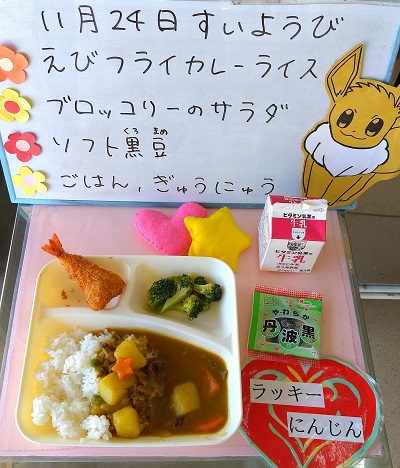 11月24日すいようび
えびフライカレーライス
ブロッコリーのサラダ
ソフト黒豆
くろ まめ
ごはん、ぎゅうにゅう
ビタミン乳業の
牛乳
ビタミン乳業の
牛乳
やわらか
丹波黒
ラッキー
にんじん